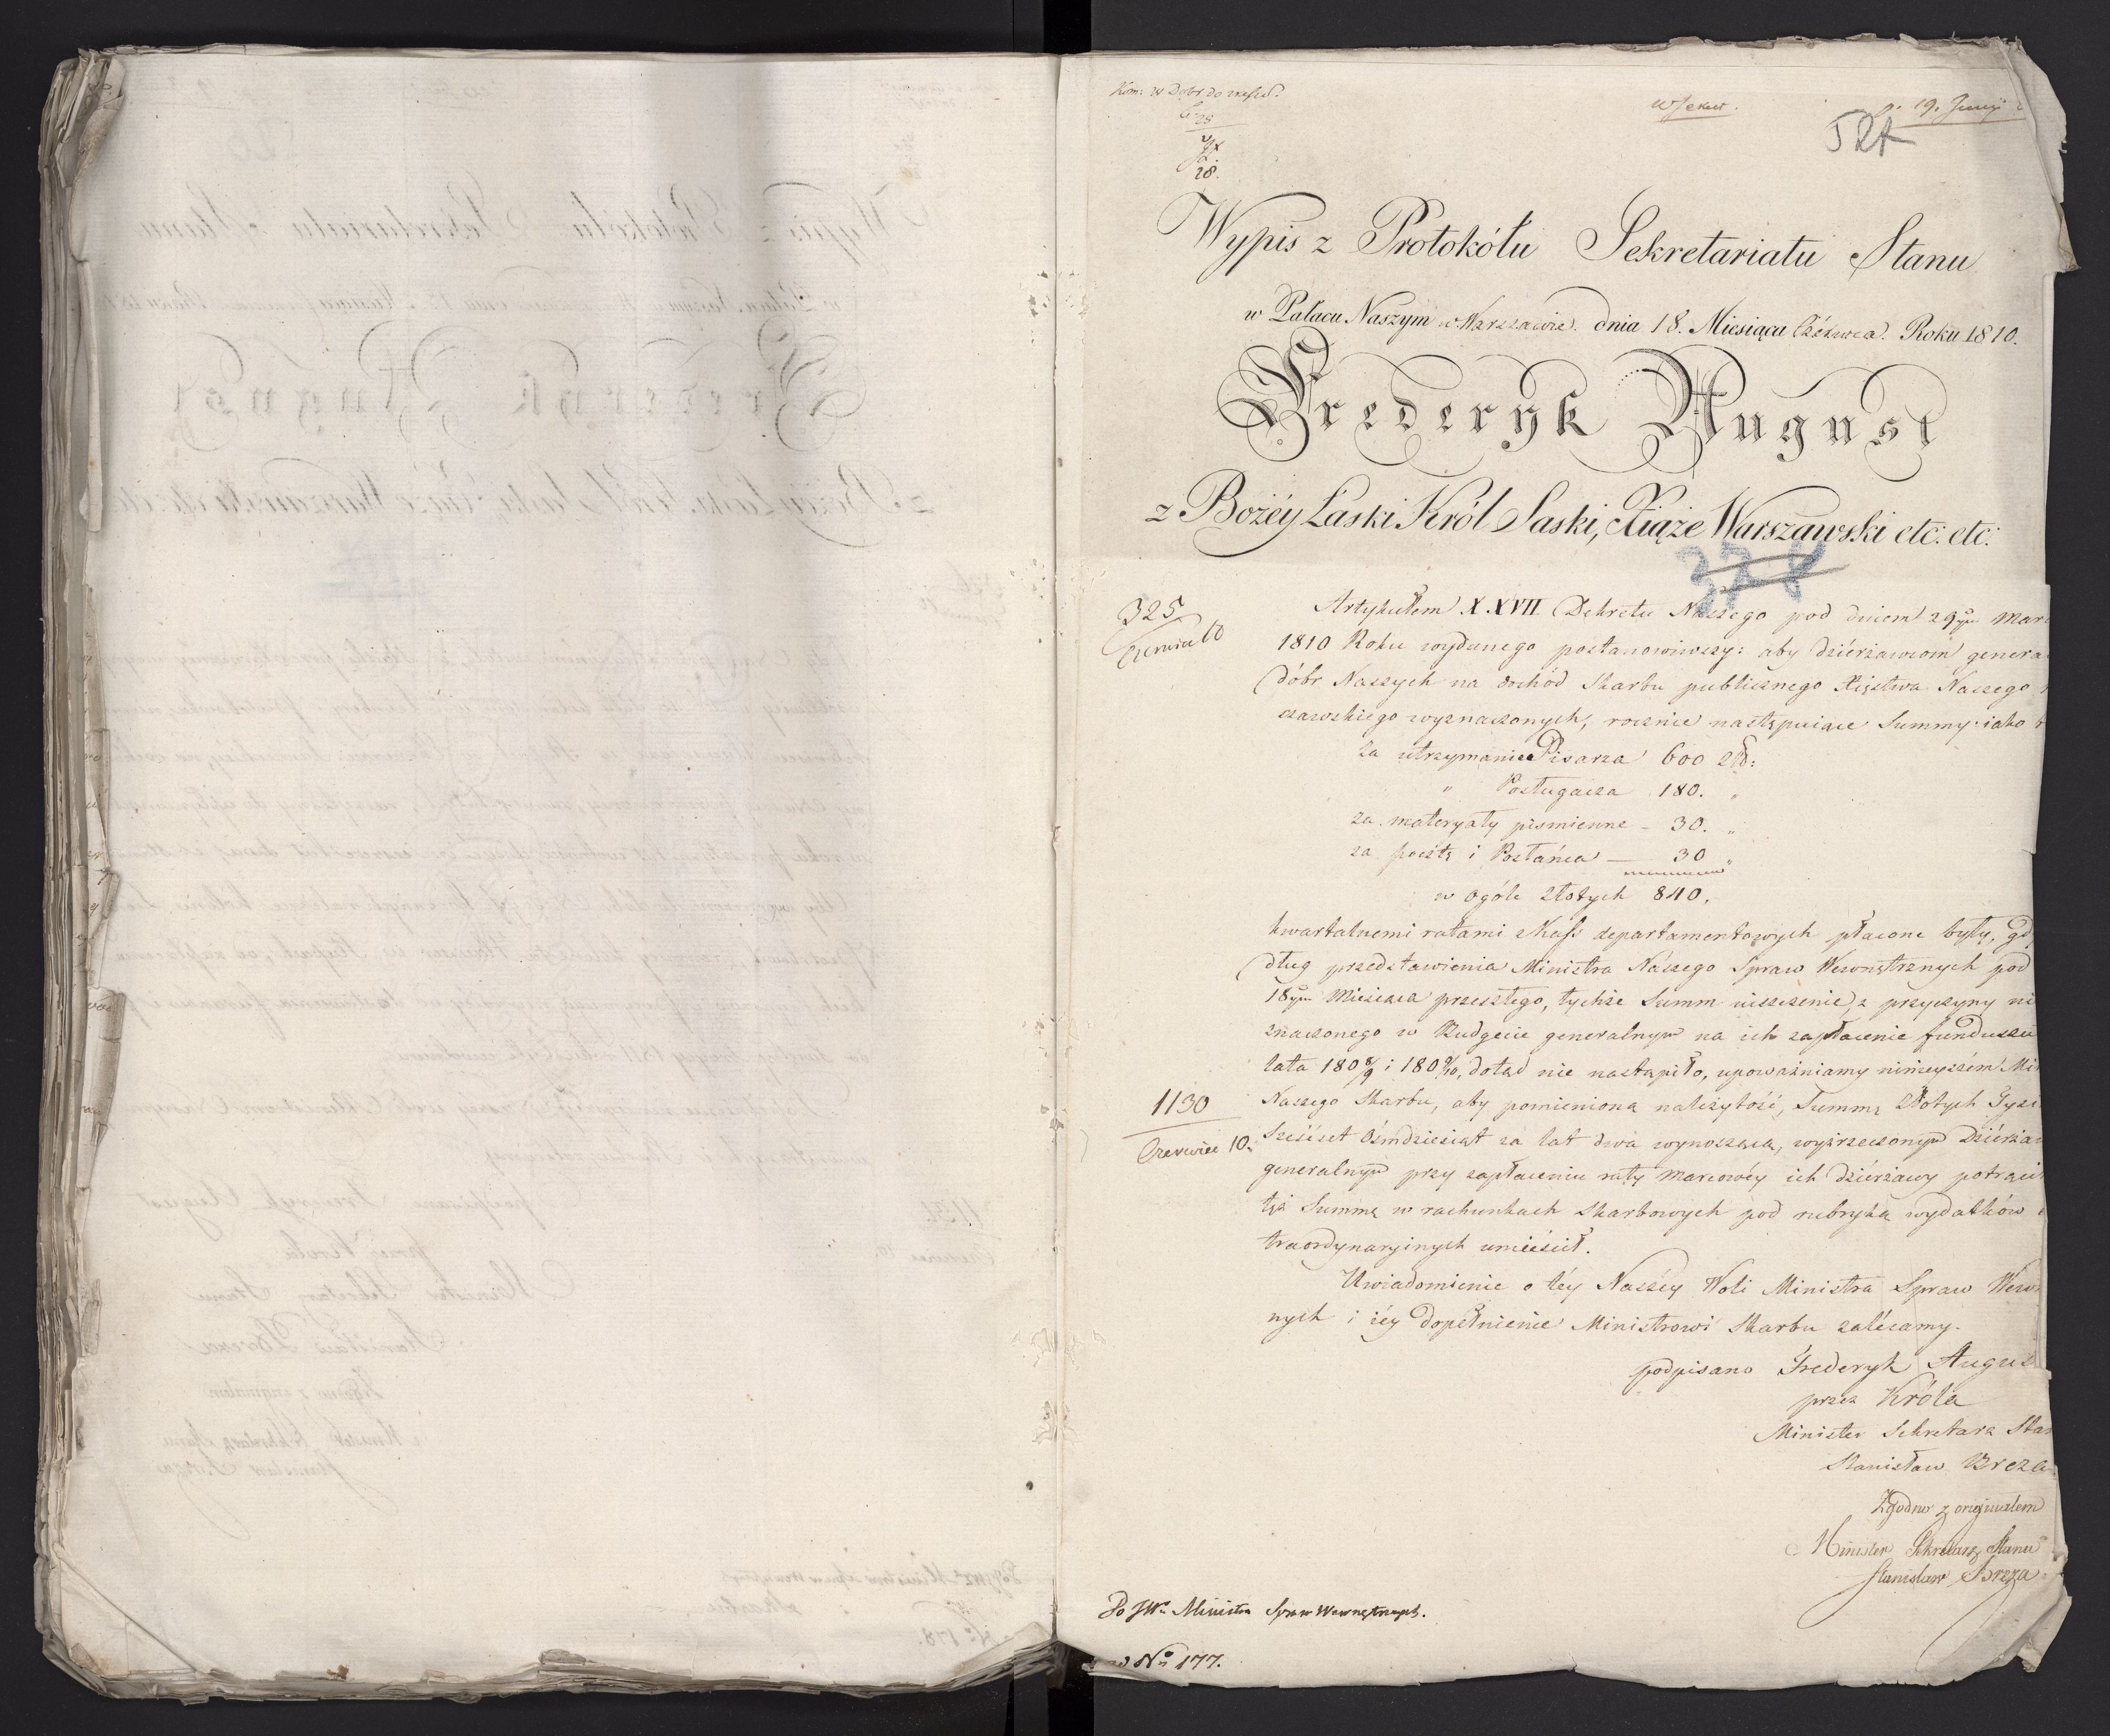 Kom: w Dobr do
28
28.
w Sekret.
d. 19. Junij
52A
Wypis z Protokółu Sekretariatu Stanu
w Pałacu Naszym w Warszawie. dnia 18. Miesiąca Czérwca. Roku 1810.
Frederyk August
z Bożéy Łaski Król Saski, Xiąże Warszawski etc: etc:
325
Czerwca 10
Artykułem XXVII Dekretu Naszego pod dniem 29ym Mar
1810 Roku wydanego postanowiwszy: aby dziérzawcom genera
dóbr Naszych na dochód Skarbu publicznego Xięstwa Naszego
szawskiego wyznaczonych, rocznie następuiące Summy: iako
za utrzymanie Pisarza 600 złł:
" Posługacza 180. "
za materyały pismienne - 30. "
za pocztę i Posłańca — 30 "
w ogóle złotych 840.
kwartalnemi ratami z Kass departamentowych płacone były, gd
dług przedstawienia Ministra Naszego Spraw Wewnętrznych pod
18ym Miesiąca przeszłego, tychże Summ uiszczenie, z przyczyny ni
znaczonego w Budgecie generalnym na ich zapłacenie funduszu
lata 180 8/9 i 180 9/10, dotąd nie nastąpiło, upoważniamy ninieyszém Mi
1130
Czerwiec 10.
Naszego Skarbu, aby pomienioną należytość, Summę Złotych Tysi
Sześćset Ośmdziesiąt za lat dwa wynoszącą, wyżrzeczonym Dziérża
generalnym przy zapłaceniu raty Marcowéy ich dziérżawy potrąci
też Summę w rachunkach Skarbowych pod rubryką wydatków
traordynaryinych umieścił.
Uwiadomienie o téy Naszéy Woli Ministra Spraw Wewn
nych i iéy dopełnienie Ministrowi Skarbu zalécamy.
podpisano Frederyk Augus
przez Króla
Minister Sekretarz Sta
Stanisław Breza
Zgodno z originalem
Minister Sekretarz Stanu
Stanisław Breza
Do JWo Ministra Spraw Wewnętrznych.
w No 177.